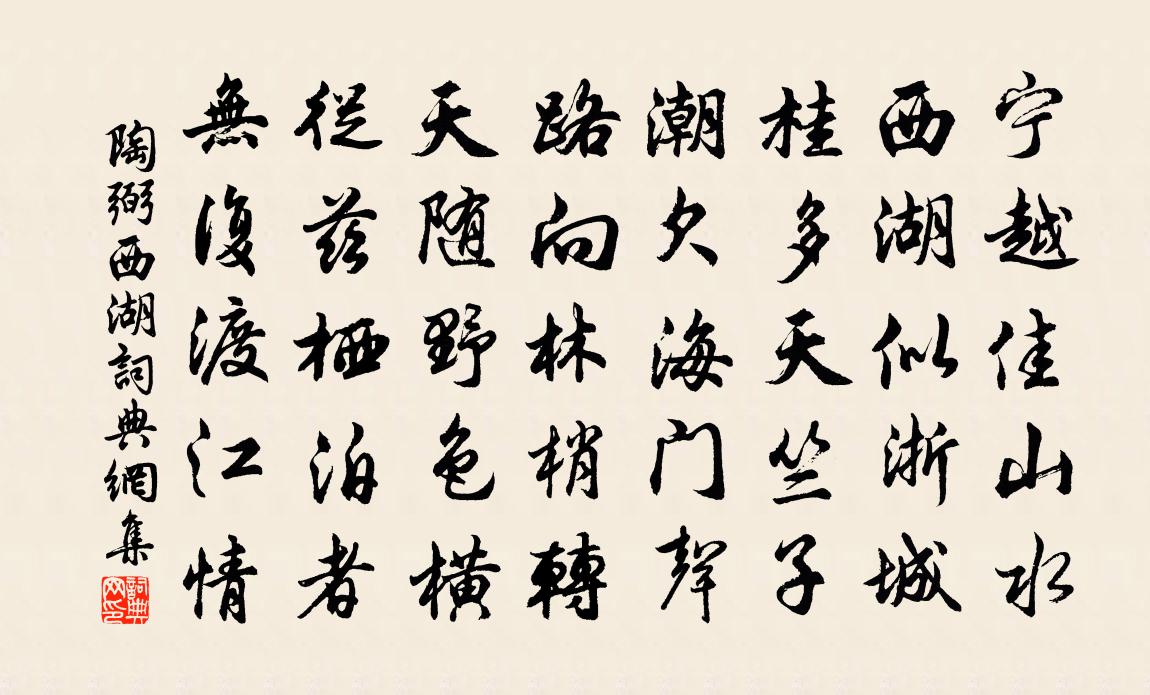 宁越佳山水
西湖似浙城
桂多天竺子
潮欠海门聲
路向林梢轉
天随野色橫
從茲栖泊者
無復渡江情
陶弼西湖詞典網集
詞典网印